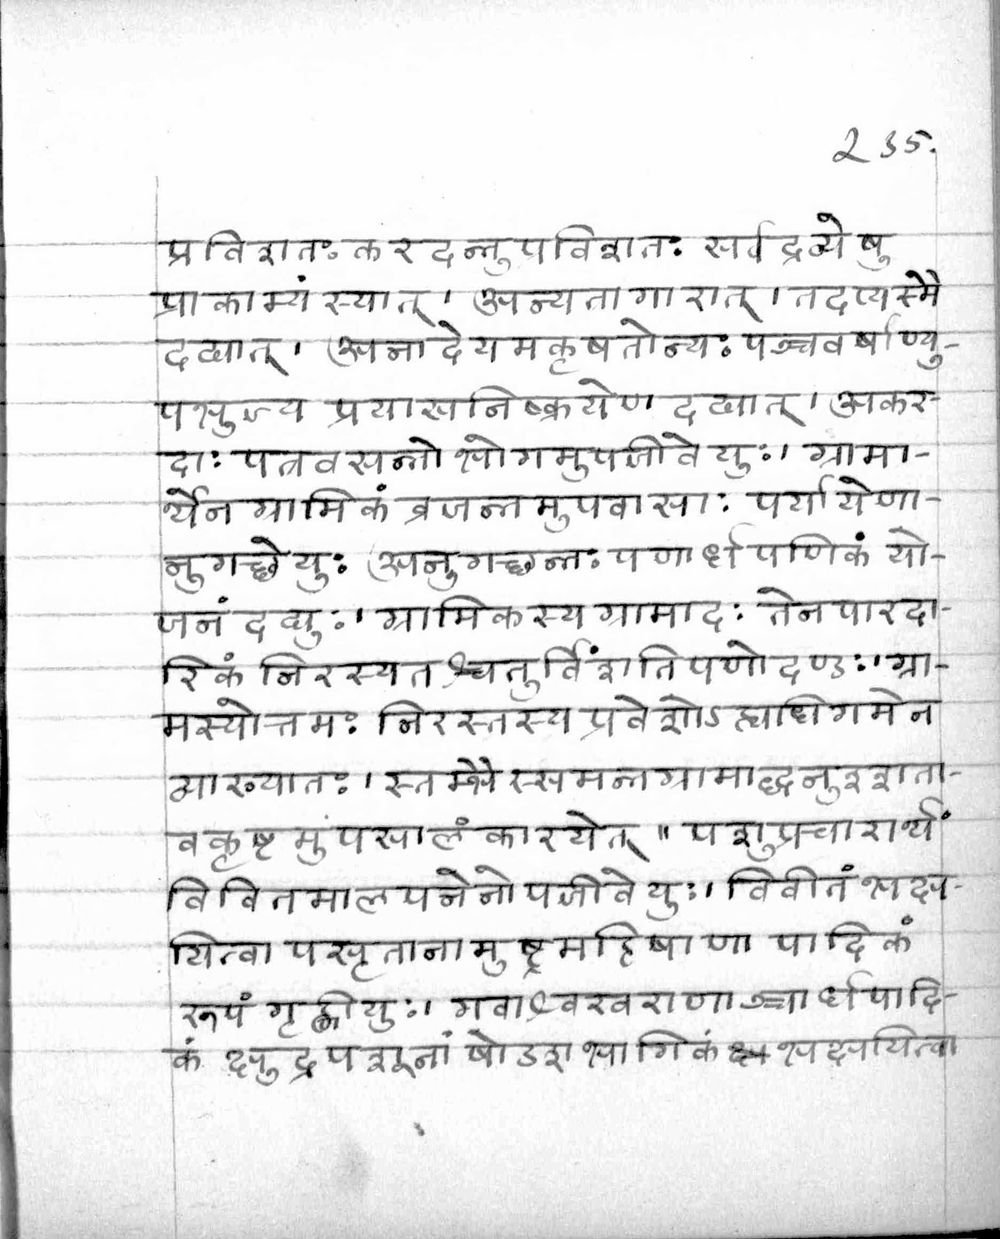 235.
प्रविशतः करदन्तुपविशतः सर्वद्रव्येषु
प्राकाम्यं स्यात्। अन्यतागारात्। तदप्यस्मै
दद्यात्। अनादेयमकृषतोन्यः पञ्चवर्षाण्यु-
पभुज्य प्रयासनिष्क्रयेण दद्यात्। अकर-
दाः पत्रवसन्तो भोगमुपजीवेयुः। ग्रामा-
र्थेन ग्रामिकं व्रजन्तमुपवासाः पर्यायेणा-
नुगच्छेयुः अनुगच्छन्तः पणार्धपणिकं यो-
जनं दद्युः। ग्रामिकस्य ग्रामादः तेनपारदा-
रिकं निरस्यतश्चतुर्विंशतिपणो दण्डः। ग्रा-
मस्योत्तमः निरस्तस्य प्रवेशोऽह्यधिगमेन
व्याख्यातः। स्तम्भैस्समन्तग्रामाद्धनुश्शता-
वकृष्टमुपसालं कारयेत्॥ पशुप्रचारार्थं
विवितमालपनेनोपजीवेयुः। विवीतं भक्ष-
यित्वा पसृतानामुष्ट्रमहिषाणा पादिकं
रूपं गृह्णीयुः। गवाश्वखराणाञ्चार्धपादि-
कं क्षुद्रपशूनां षोडशभागिकं भक्षयित्वा